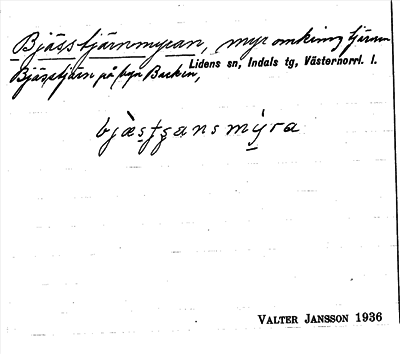 Bjässtjärnmyran, myr omkring tjärnen
Lidens sn, Indals tg, Västernorrl. l.
Bjässtjärn på byn Backen,
bjæstʃansmýra
VALTER JANSSON 1936